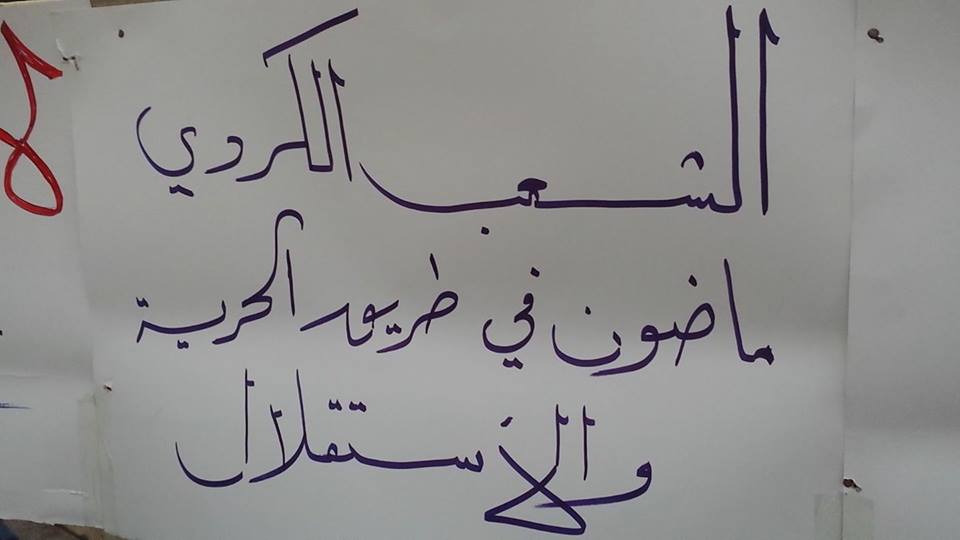 الشعب الكردي
ماضون في طريق الحرية
والاستقلال